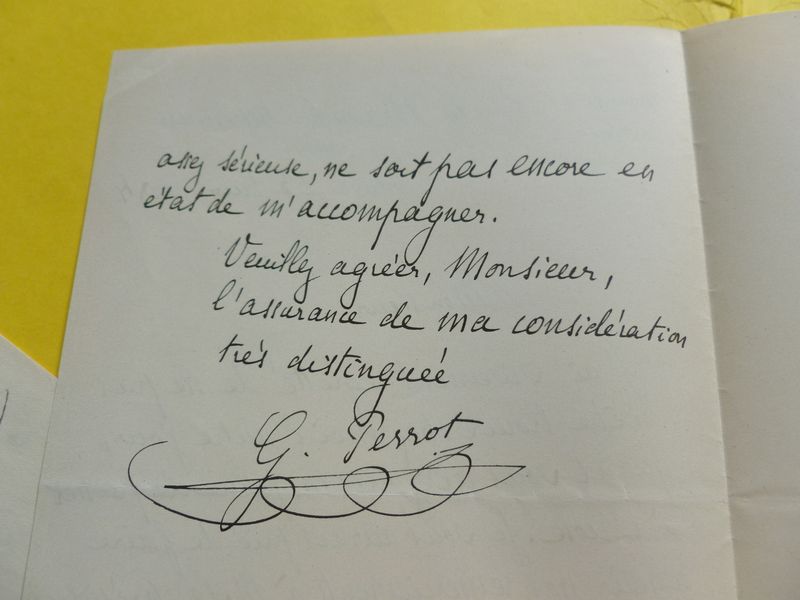 assez sérieuse, ne soit pas encore en
état de m'accompagner.
Veuillez agréer, Monsieur,
l'assurance de ma considération
très distinguée
G. Perrot